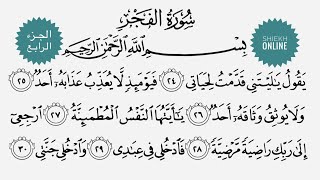 سُورَةُ الْفَجْرِ
الجزء
الرابع
SHIEKH
ONLINE
بِسْمِ اللَّهِ الرَّحْمَٰنِ الرَّحِيمِ
يَقُولُ يَٰلَيْتَنِى قَدَّمْتُ لِحَيَاتِى ٢٤ فَيَوْمَئِذٍ لَّا يُعَذِّبُ عَذَابَهُۥٓ أَحَدٌ ٢٥
وَلَا يُوثِقُ وَثَاقَهُۥٓ أَحَدٌ ٢٦ يَٰٓأَيَّتُهَا ٱلنَّفْسُ ٱلْمُطْمَئِنَّةُ ٢٧ ٱرْجِعِىٓ
إِلَىٰ رَبِّكِ رَاضِيَةً مَّرْضِيَّةً ٢٨ فَٱدْخُلِى فِى عِبَٰدِى ٢٩ وَٱدْخُلِى جَنَّتِى ٣٠